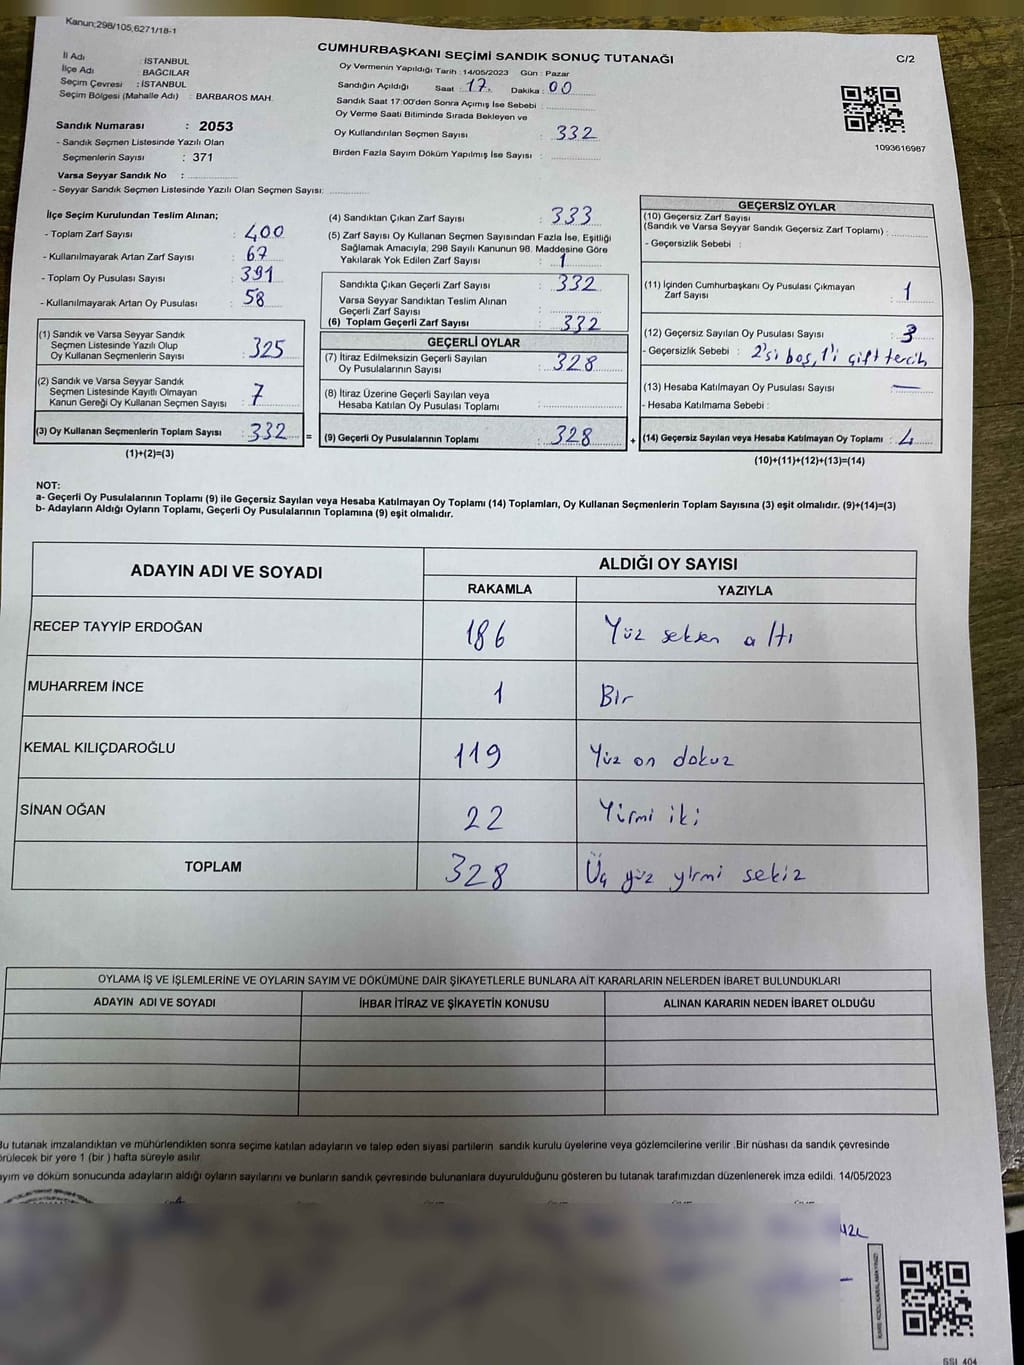 Kanun:298/105,6271/18-1
CUMHURBAŞKANI SEÇİMİ SANDIK SONUÇ TUTANAĞI
C/2
İl Adı : İSTANBUL
İlçe Adı : BAĞCILAR
Seçim Çevresi : İSTANBUL
Seçim Bölgesi (Mahalle Adı) : BARBAROS MAH.
Oy Vermenin Yapıldığı Tarih : 14/05/2023 Gün : Pazar
Sandığın Açıldığı Saat : 17. Dakika : 00
Sandık Saat 17:00'den Sonra Açımış İse Sebebi :
Oy Verme Saati Bitiminde Sırada Bekleyen ve
Oy Kullandırılan Seçmen Sayısı : 332
Birden Fazla Sayım Döküm Yapılmış İse Sayısı :
1093616987
Sandık Numarası : 2053
- Sandık Seçmen Listesinde Yazılı Olan
Seçmenlerin Sayısı : 371
Varsa Seyyar Sandık No :
- Seyyar Sandık Seçmen Listesinde Yazılı Olan Seçmen Sayısı:
İlçe Seçim Kurulundan Teslim Alınan;
- Toplam Zarf Sayısı : 400
- Kullanılmayarak Artan Zarf Sayısı : 67
- Toplam Oy Pusulası Sayısı : 391
- Kullanılmayarak Artan Oy Pusulası : 58
(1) Sandık ve Varsa Seyyar Sandık
Seçmen Listesinde Yazılı Olup
Oy Kullanan Seçmenlerin Sayısı : 325
(2) Sandık ve Varsa Seyyar Sandık
Seçmen Listesinde Kayıtlı Olmayan
Kanun Gereği Oy Kullanan Seçmen Sayısı : 7
(3) Oy Kullanan Seçmenlerin Toplam Sayısı : 332 =
(1)+(2)=(3)
(4) Sandıktan Çıkan Zarf Sayısı : 333
(5) Zarf Sayısı Oy Kullanan Seçmen Sayısından Fazla İse, Eşitliği
Sağlamak Amacıyla, 298 Sayılı Kanunun 98. Maddesine Göre
Yakılarak Yok Edilen Zarf Sayısı : 1
Sandıkta Çıkan Geçerli Zarf Sayısı : 332
Varsa Seyyar Sandıktan Teslim Alınan
Geçerli Zarf Sayısı :
(6) Toplam Geçerli Zarf Sayısı : 332
GEÇERLİ OYLAR
(7) İtiraz Edilmeksizin Geçerli Sayılan
Oy Pusulalarının Sayısı : 328
(8) İtiraz Üzerine Geçerli Sayılan veya
Hesaba Katılan Oy Pusulası Toplamı :
(9) Geçerli Oy Pusulalarının Toplamı : 328 +
GEÇERSİZ OYLAR
(10) Geçersiz Zarf Sayısı
(Sandık ve Varsa Seyyar Sandık Geçersiz Zarf Toplamı) :
- Geçersizlik Sebebi :
(11) İçinden Cumhurbaşkanı Oy Pusulası Çıkmayan
Zarf Sayısı : 1
(12) Geçersiz Sayılan Oy Pusulası Sayısı : 3
- Geçersizlik Sebebi : 2'si boş, 1'i çift tercih
(13) Hesaba Katılmayan Oy Pusulası Sayısı : —
- Hesaba Katılmama Sebebi :
(14) Geçersiz Sayılan veya Hesaba Katılmayan Oy Toplamı : 4
(10)+(11)+(12)+(13)=(14)
NOT:
a- Geçerli Oy Pusulalarının Toplamı (9) ile Geçersiz Sayılan veya Hesaba Katılmayan Oy Toplamı (14) Toplamları, Oy Kullanan Seçmenlerin Toplam Sayısına (3) eşit olmalıdır. (9)+(14)=(3)
b- Adayların Aldığı Oyların Toplamı, Geçerli Oy Pusulalarının Toplamına (9) eşit olmalıdır.
ADAYIN ADI VE SOYADI
ALDIĞI OY SAYISI
RAKAMLA YAZIYLA
RECEP TAYYİP ERDOĞAN 186 Yüz seksen altı
MUHARREM İNCE 1 Bir
KEMAL KILIÇDAROĞLU 119 Yüz on dokuz
SİNAN OĞAN 22 Yirmi iki
TOPLAM 328 Üç yüz yirmi sekiz
OYLAMA İŞ VE İŞLEMLERİNE VE OYLARIN SAYIM VE DÖKÜMÜNE DAİR ŞİKAYETLERLE BUNLARA AİT KARARLARIN NELERDEN İBARET BULUNDUKLARI
ADAYIN ADI VE SOYADI İHBAR İTİRAZ VE ŞİKAYETİN KONUSU ALINAN KARARIN NEDEN İBARET OLDUĞU
Bu tutanak imzalandıktan ve mühürlendikten sonra seçime katılan adayların ve talep eden siyasi partilerin sandık kurulu üyelerine veya gözlemcilerine verilir .Bir nüshası da sandık çevresinde
örülecek bir yere 1 (bir ) hafta süreyle asılır.
ayım ve döküm sonucunda adayların aldığı oyların sayılarını ve bunların sandık çevresinde bulunanlara duyurulduğunu gösteren bu tutanak tarafımızdan düzenlenerek imza edildi. 14/05/2023
SSI_404